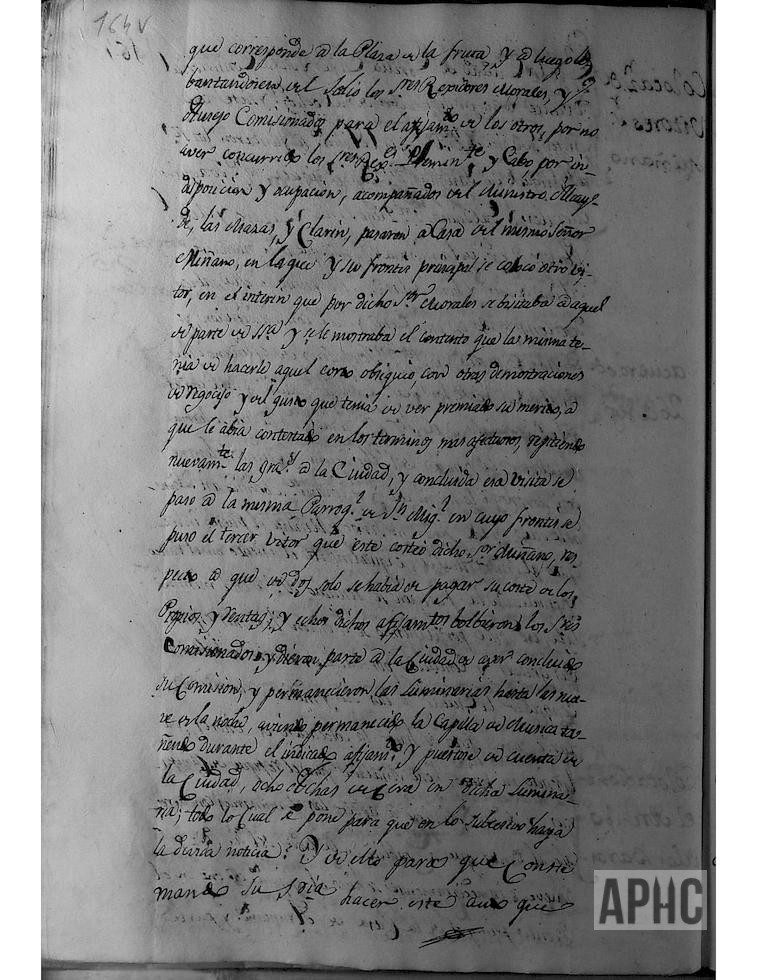 164v
que corresponde a la Plaza de la fruta, y a luego
levantandose del Solio los Sres Rexidores Morales, y
Comisionados para el afijamto de los otros, por no
aver concurrido los Sres y Cabo, por in-
disposicion y ocupacion, acompañados del Ministro Alcay-
de, las Mazas, y Clarin, pasaron a Casa del mismo Señor
Miñano, en la que y su frontis principal se colocó otro vi-
tor, en el interin que por dicho Sor Morales se bisitaba a aquel
de parte de SSa y se le mostraba el contento que la misma te-
nia de hacerle aquel corto obsequio, con otras demostraciones
de regocijo y del gusto que tenia de ver premiado su merito, a
que le abia contestado en los terminos mas afectuosos, repitiendo
nuevamte las gras a la Ciudad, y concluida esa visita se
paso a la misma Parroqa de Sn Migl en cuyo frontis se
puso el tercer vitor que este costeó dicho Sor Miñano, res-
pecto a que de dos solo se habia de pagar su coste de los
Propios y Rentas; y echos dichos afijamtos bolbieron los Sres
Comisionados, y dieron parte a la Ciudad de aver concluido
su Comision, y permanecieron las Luminarias hasta las nue-
ve de la noche, aviendo permanecido la Capilla de Musica ta-
ñendo durante el indicado afijamto y puestose de cuenta de
la Ciudad, ocho achas de Cera en dicha Lumina-
ria; todo lo cual se pone para que en lo subcesivo haya
la devida noticia: Y de ello para que Conste
mando Su Sria hacer este auto que
APHC